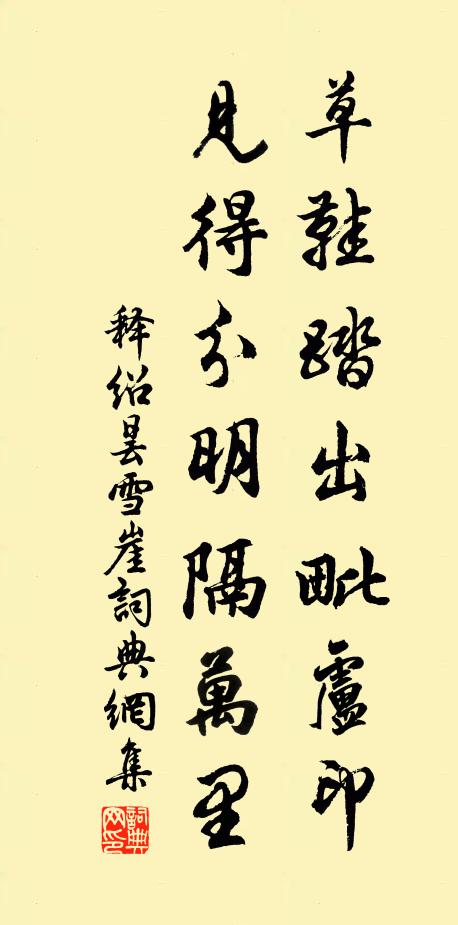 草鞋踏出毗盧印
見得分明隔萬里
释绍昙雪崖詞典網集
詞典网印